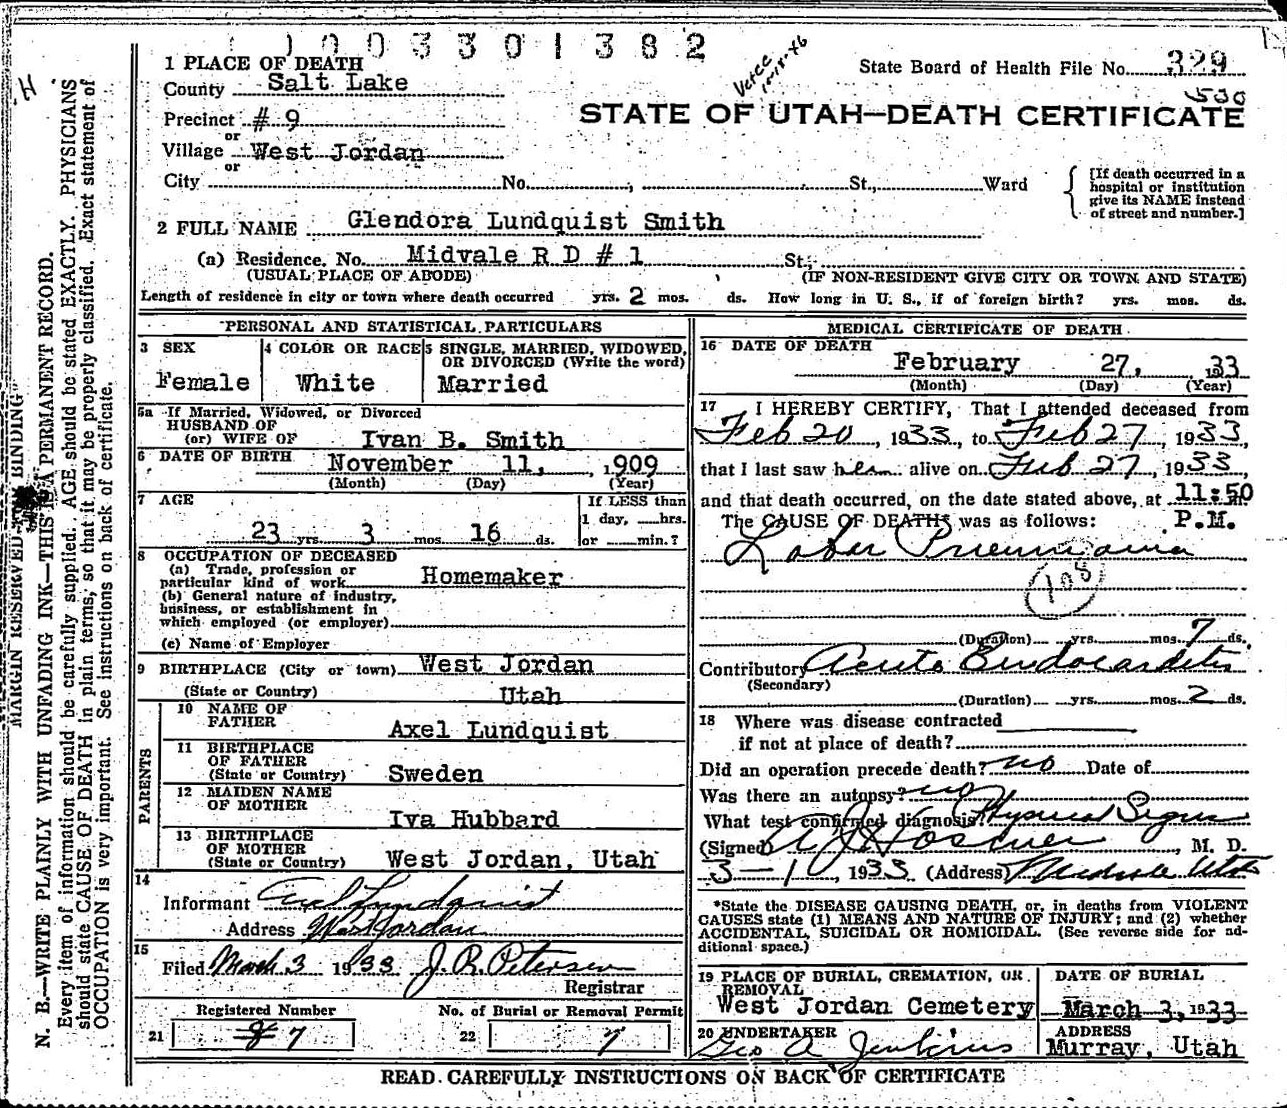 1003301382
1 PLACE OF DEATH
County Salt Lake
State Board of Health File No. 329
530
Precinct # 9
or
STATE OF UTAH—DEATH CERTIFICATE
Village West Jordan
or
City No. , St., Ward
[If death occurred in a
hospital or institution
give its NAME instead
of street and number.]
2 FULL NAME Glendora Lundquist Smith
(a) Residence, No. Midvale R D # 1 St.,
(USUAL PLACE OF ABODE) (IF NON-RESIDENT GIVE CITY OR TOWN AND STATE)
Length of residence in city or town where death occurred yrs. 2 mos. ds. How long in U. S., if of foreign birth? yrs. mos. ds.
PERSONAL AND STATISTICAL PARTICULARS
3 SEX
Female
4 COLOR OR RACE
White
5 SINGLE, MARRIED, WIDOWED,
OR DIVORCED (Write the word)
Married
5a If Married, Widowed, or Divorced
HUSBAND OF
(or) WIFE OF Ivan B. Smith
6 DATE OF BIRTH November 11, 1909
(Month) (Day) (Year)
7 AGE
23 yrs. 3 mos. 16 ds.
If LESS than
1 day, hrs.
or min.?
8 OCCUPATION OF DECEASED
(a) Trade, profession or
particular kind of work Homemaker
(b) General nature of industry,
business, or establishment in
which employed (or employer)
(c) Name of Employer
9 BIRTHPLACE (City or town) West Jordan
(State or Country) Utah
PARENTS
10 NAME OF
FATHER Axel Lundquist
11 BIRTHPLACE
OF FATHER
(State or Country) Sweden
12 MAIDEN NAME
OF MOTHER
Iva Hubbard
13 BIRTHPLACE
OF MOTHER
(State or Country) West Jordan, Utah
14
Informant Axel Lundquist
Address West Jordan
15
Filed March 3 1933 J. R. Petersen
Registrar
Registered Number
21 8 7
No. of Burial or Removal Permit
22 7
MEDICAL CERTIFICATE OF DEATH
16 DATE OF DEATH
February 27, 33
(Month) (Day) (Year)
17 I HEREBY CERTIFY, That I attended deceased from
Feb 20, 1933, to Feb 27, 1933,
that I last saw her alive on Feb 27, 1933,
and that death occurred, on the date stated above, at 11:50
P.M.
The CAUSE OF DEATH* was as follows:
Lobar Pneumonia
108
(Duration) yrs. mos. 7 ds.
Contributory Acute Endocarditis
(Secondary)
(Duration) yrs. mos. 2 ds.
18 Where was disease contracted
if not at place of death?
Did an operation precede death? no Date of
Was there an autopsy? no
What test confirmed diagnosis? Physical Signs
(Signed) , M. D.
3-1, 1933 (Address) Midvale Utah
*State the DISEASE CAUSING DEATH, or, in deaths from VIOLENT
CAUSES state (1) MEANS AND NATURE OF INJURY; and (2) whether
ACCIDENTAL, SUICIDAL OR HOMICIDAL. (See reverse side for ad-
ditional space.)
19 PLACE OF BURIAL, CREMATION, OR
REMOVAL
West Jordan Cemetery
DATE OF BURIAL
March 3, 1933
20 UNDERTAKER
Geo A Jenkins
ADDRESS
Murray, Utah
READ CAREFULLY INSTRUCTIONS ON BACK OF CERTIFICATE
MARGIN RESERVED BINDING
N. B.—WRITE PLAINLY WITH UNFADING INK—THIS IS A PERMANENT RECORD.
Every item of information should be carefully supplied. AGE should be stated EXACTLY. PHYSICIANS
should state CAUSE OF DEATH in plain terms, so that it may be properly classified. Exact statement of
OCCUPATION is very important. See instructions on back of certificate.